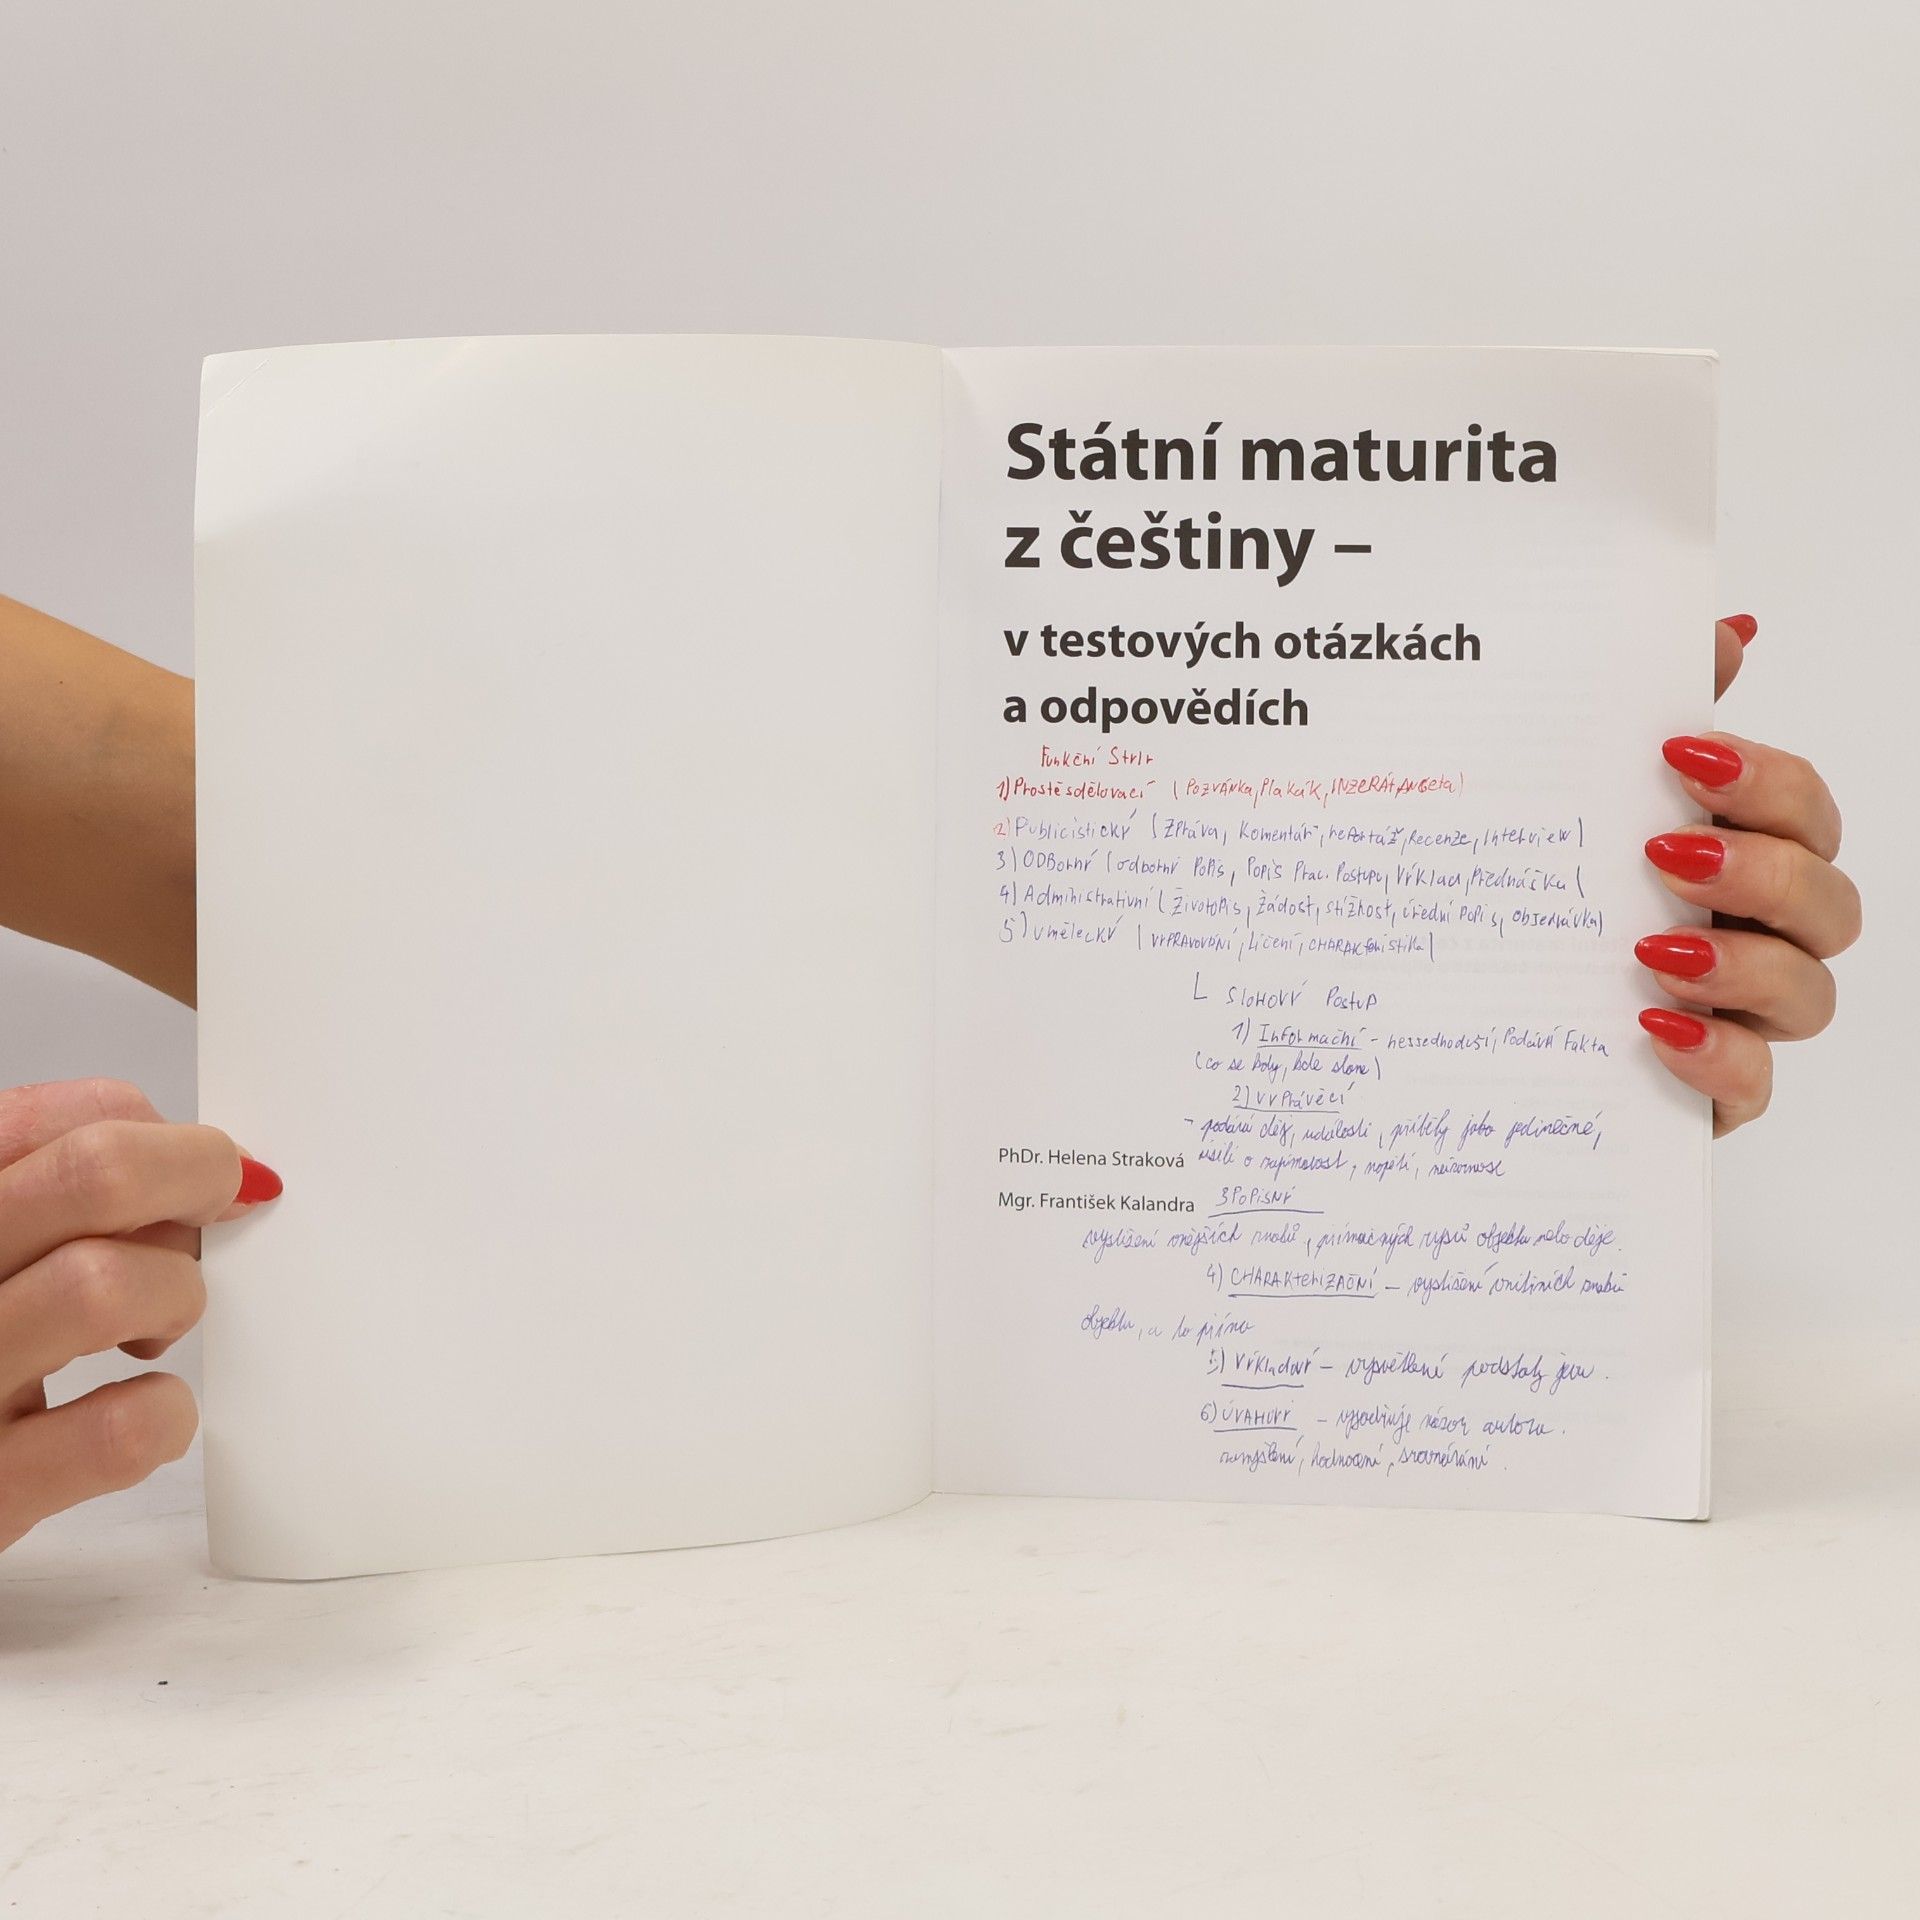 Státní maturita
z češtiny –
v testových otázkách
a odpovědích
Funkční Styly
1) Prostě sdělovací (Pozvánka, Plakák, INZERÁT, ANKeta)
2) Publicistický (Zpráva, Komentář, reportáž, Recenze, Interview)
3) ODBorný (odborný Popis, Popis Prac. Postupu, Výklad, Přednáška)
4) Administrativní (Životopis, Žádost, stížnost, úřední Popis, objednávka)
5) Umělecký (VYPRAVOVÁNÍ, Líčení, CHARAKteristika)
L SLOHOVÝ PostuP
1) Informační - nejjednodušší, Podává Fakta
(co se kdy, kde stane)
2) VYPrávěcí
- podává děj, události, příběhy jako jedinečné,
PhDr. Helena Straková
úsilí o zajímavost, napětí, neizornost
Mgr. František Kalandra
3 POPISNÝ
vystižení vnějších znaků, příznačných rysů objektu nebo děje.
4) CHARAKterIZAČNÍ – vystižení vnitřních znaků
objektu, a to přímo
5) Výkladový – vysvětlení podstaty jevu.
6) ÚVAHOVÝ – vyjadřuje názor autora.
zamyšlení, hodnocení, srovnávání.